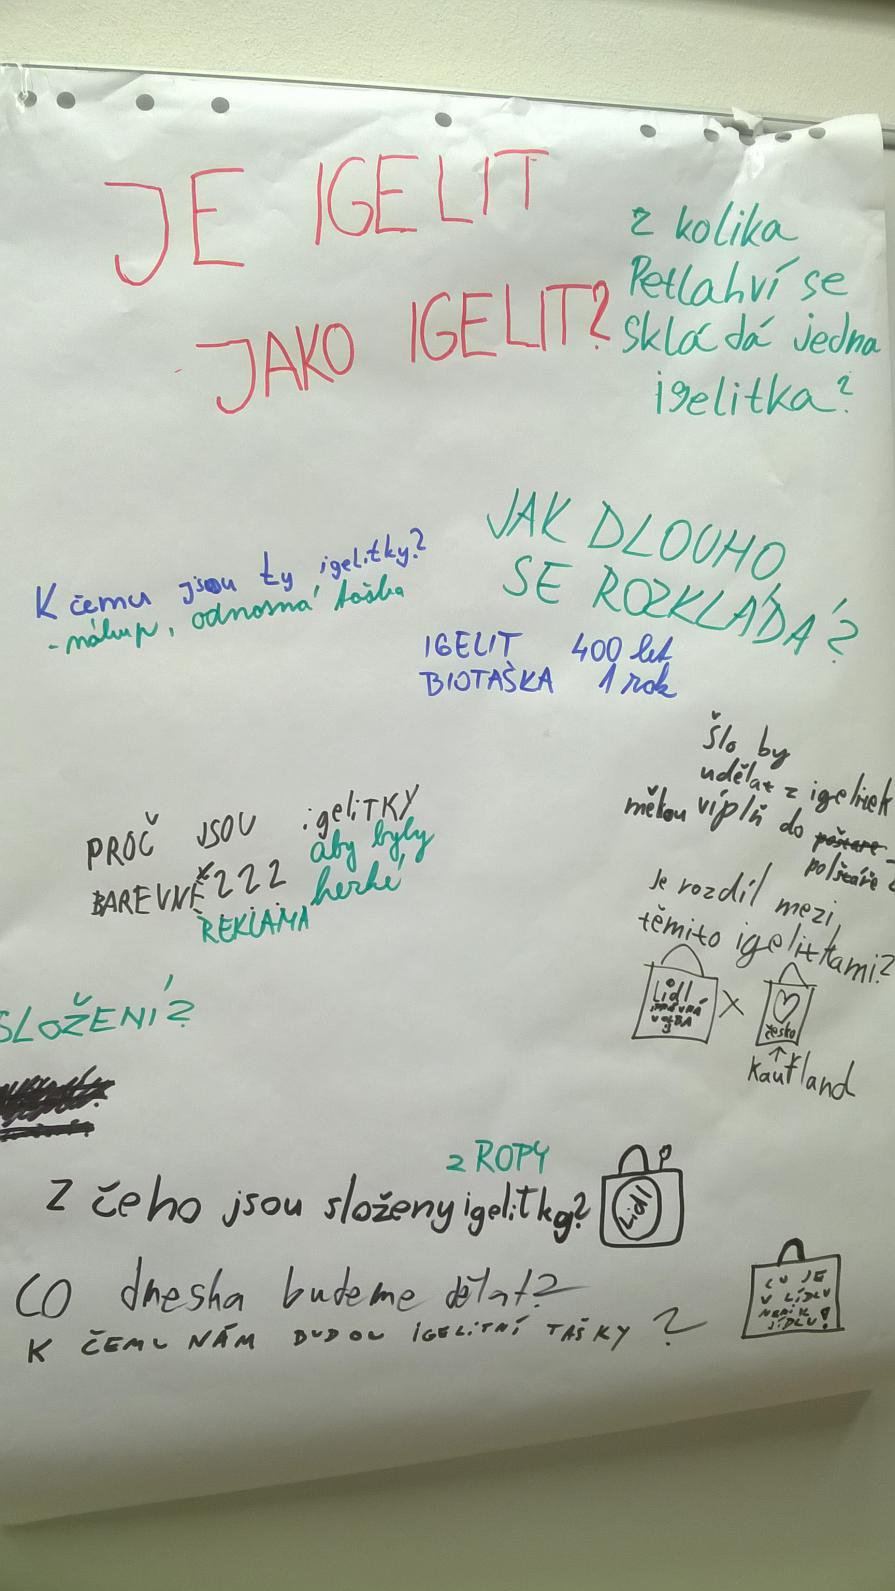 JE IGELIT
JAKO IGELIT?
z kolika
Petlahví se
skládá jedna
igelitka?
JAK DLOUHO
SE ROZKLÁDÁ?
IGELIT 400 let
BIOTAŠKA 1 rok
K čemu jsou ty igelitky?
- nákup, odnosná taška
šlo by
udělat z igelitek
měkou víplň do
polštáře?
PROČ JSOU igeliTKY
BAREVNÉ???
aby byly
herké
REKLAMA
Je rozdíl mezi
těmito igelitkami?
Lidl
X
česko
Kaufland
SLOŽENÍ?
z ROPY
Z čeho jsou složeny igelitky?
Lidl
CO dneska budeme dělat?
K ČEMU NÁM BUDOU IGELITNÍ TAŠKY?
CO JE
V LIDLU
JÍDLU!